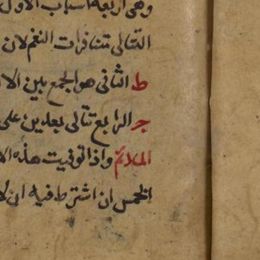 وهى اربعة اسباب الاول
التتالى تنافرات النغم لان
ط الثانى هو الجمع بين الا
ج الرابع تتالى بعدين على
الملائم واذا توفيت هذه الا
الخمس ان اشترط فيه ان لا